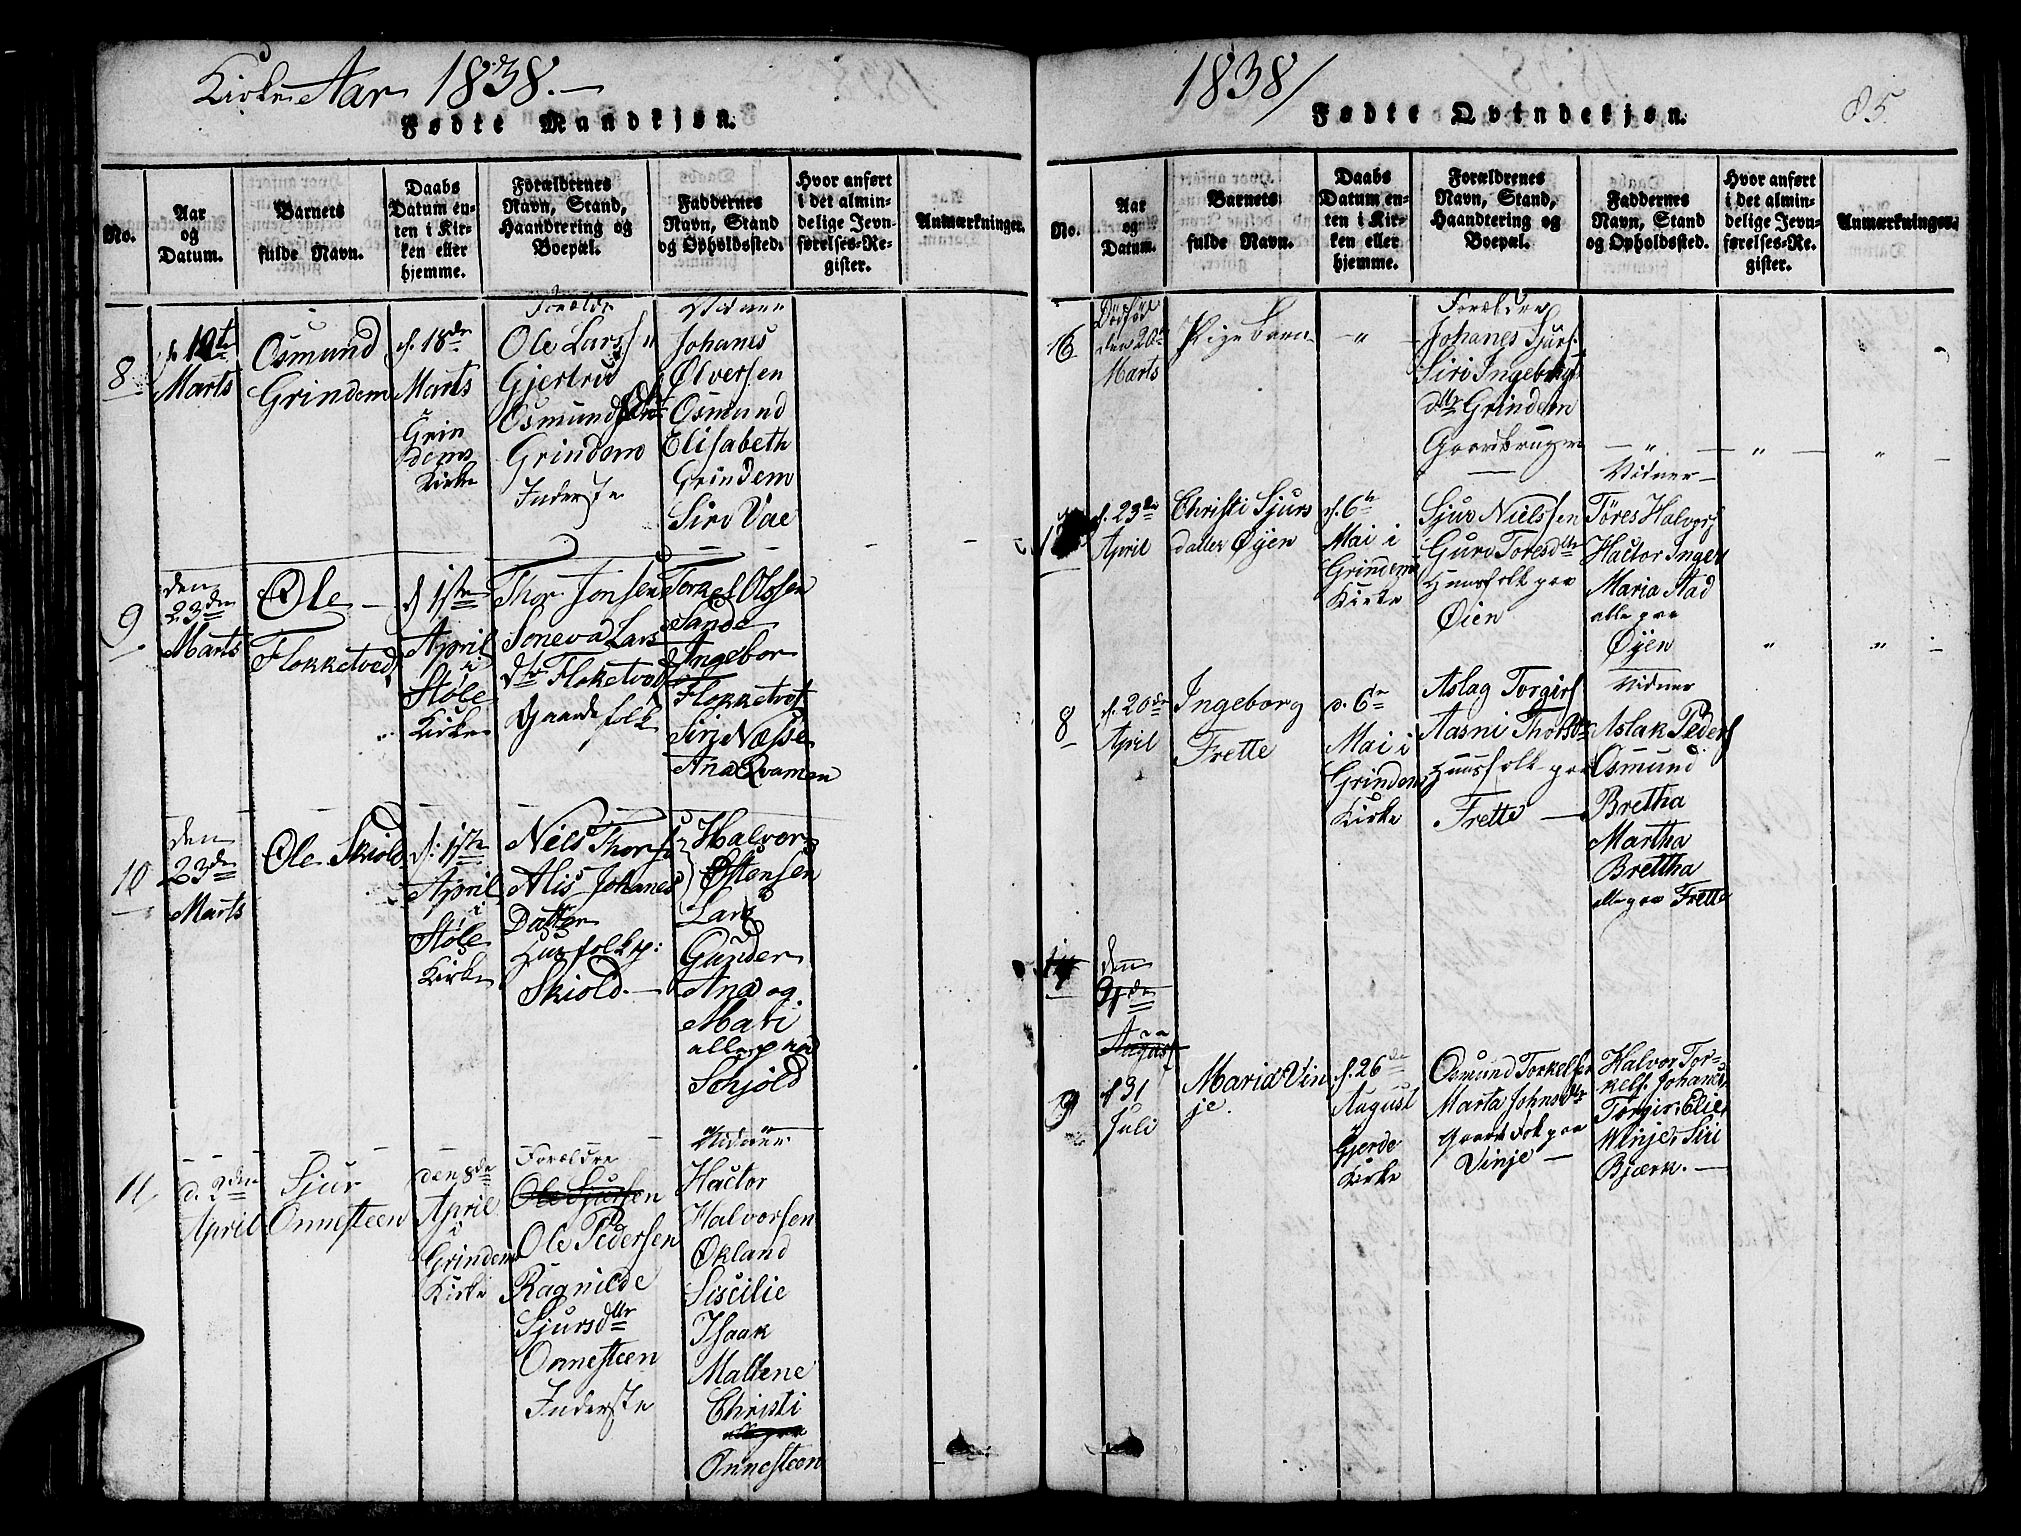 Kirke Aar 1838.
Fødte Mandkjøn.
No.
Aar og Datum.
Barnets fulde Navn.
Daabs Datum enten i Kirken eller hjemme.
Forældrenes Navn, Stand, Haandtering og Boepæl.
Faddernes Navn, Stand og Opholdssted.
Hvor anført i det almindelige Jevnførelses-Register.
Anmærkninger.
8
d. 12te
Marts
Osmund
Grindem
d. 18de
Marts
Grin
dems
Kirke
Forældr
Ole Larss
Gjertrud
Osmundsdtr
Grindem
Inderste
Vidner
Johanes
Ølversen
Osmund
Elisabeth
Grindem
Siri Vae
9
den
23de
Marts
Ole
Flokketved
d 1ste
April
i
Støle
Kirke
Thor Jonsen
Soneva Lars
dtr Floketved
Gaardfolk
Torkel Olssen
Sande
Ingebor
Flokketvet
Siri Næsse
Ana Qvamen
10
den
23de
Marts
Ole Skiold
d: 1ste
April
i
Støle
Kirke
Niels Thors
Alis Johanes
Datter
Husfolk p:
Skiold
Halvor
Østensen
Lars
Gunder
Ana og
Mari
alle paa
Schjold
11
d. 2den
April
Sjur
Onnesteen
den 8de
April
i
Grindems
Kirke
Forældre
Ole Sjursen
Ole Pedersen
Ragnilde
Sjursdtr
Onnesteen
Inderste
Vidner
Hactor
Halvorsen
Økland
Siscilie
Isaak
Mallene
Christi
alle paa
Onnesteen
1838
85
Fødte Qvindekjøn.
No.
Aar og Datum.
Barnets fulde Navn.
Daabs Datum enten i Kirken eller hjemme.
Forældrenes Navn, Stand, Haandtering og Boepæl.
Faddernes Navn, Stand og Opholdssted.
Hvor anført i det almindelige Jevnførelses-Register.
Anmærkninger.
6
Dødfød
den 20de
Marts
Pigebarn
Forældre
Johanes Sjurs.
Siri Ingebrigt
dtr Grindem
Gaardbruger
d. 23de
April
Christi Sjurs
datter Øyen
d. 6te
Mai i
Grindems
Kirke
Sjur Nielssen
Guri Toresdtr
Huusfolk paa
Øien
Vidner
Tøres Halvors
Hactor Inger
Maria Aad
alle paa
Øyen
8
d. 20de
April
Ingeborg
Frette
d. 6te
Mai i
Grindem
Kirke
Aslag Torgirs
Aasni Thorsdtr
Huusfolk paa
Frette
Vidner
Aslak Peders
Osmund
Bretha
Martha
Brettha
alle paa Frette
den
31de
August
9
d 31
Juli
Maria Vin
je.
d. 26de
August
Gjerde
Kirke
Osmund Torkelsen
Marta Johnsdtr
Gaardfolk paa
Vinje
Halvor Tor-
kels. Johanes
Torgir, Elie
Winje, Siri
Bjærk.